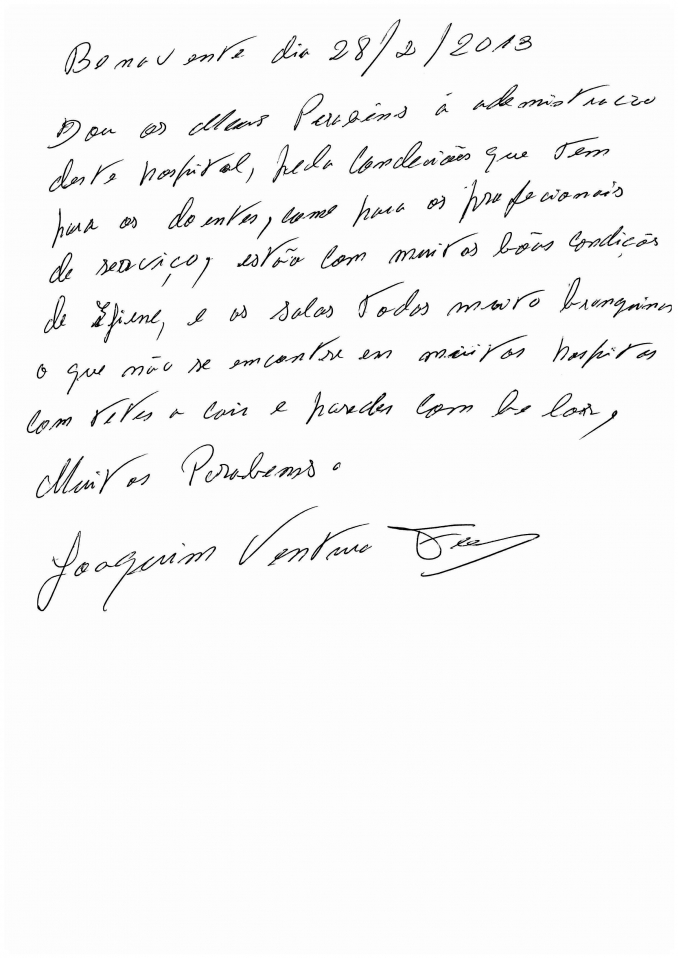 Benavente dia 28/2/2013
Dou os Meus Parabéns á administracao
deste hospital, pela condiciões que tem
para os doentes, como para os profecionais
de serviço, estão com muitos bôas condiçõs
de Igiene, e as salas todas muito branquinas
o que não se encontre en muitos hospitas
com tetes a cair e paredes com
Muitos Parabenss.
Joaquim Ventura